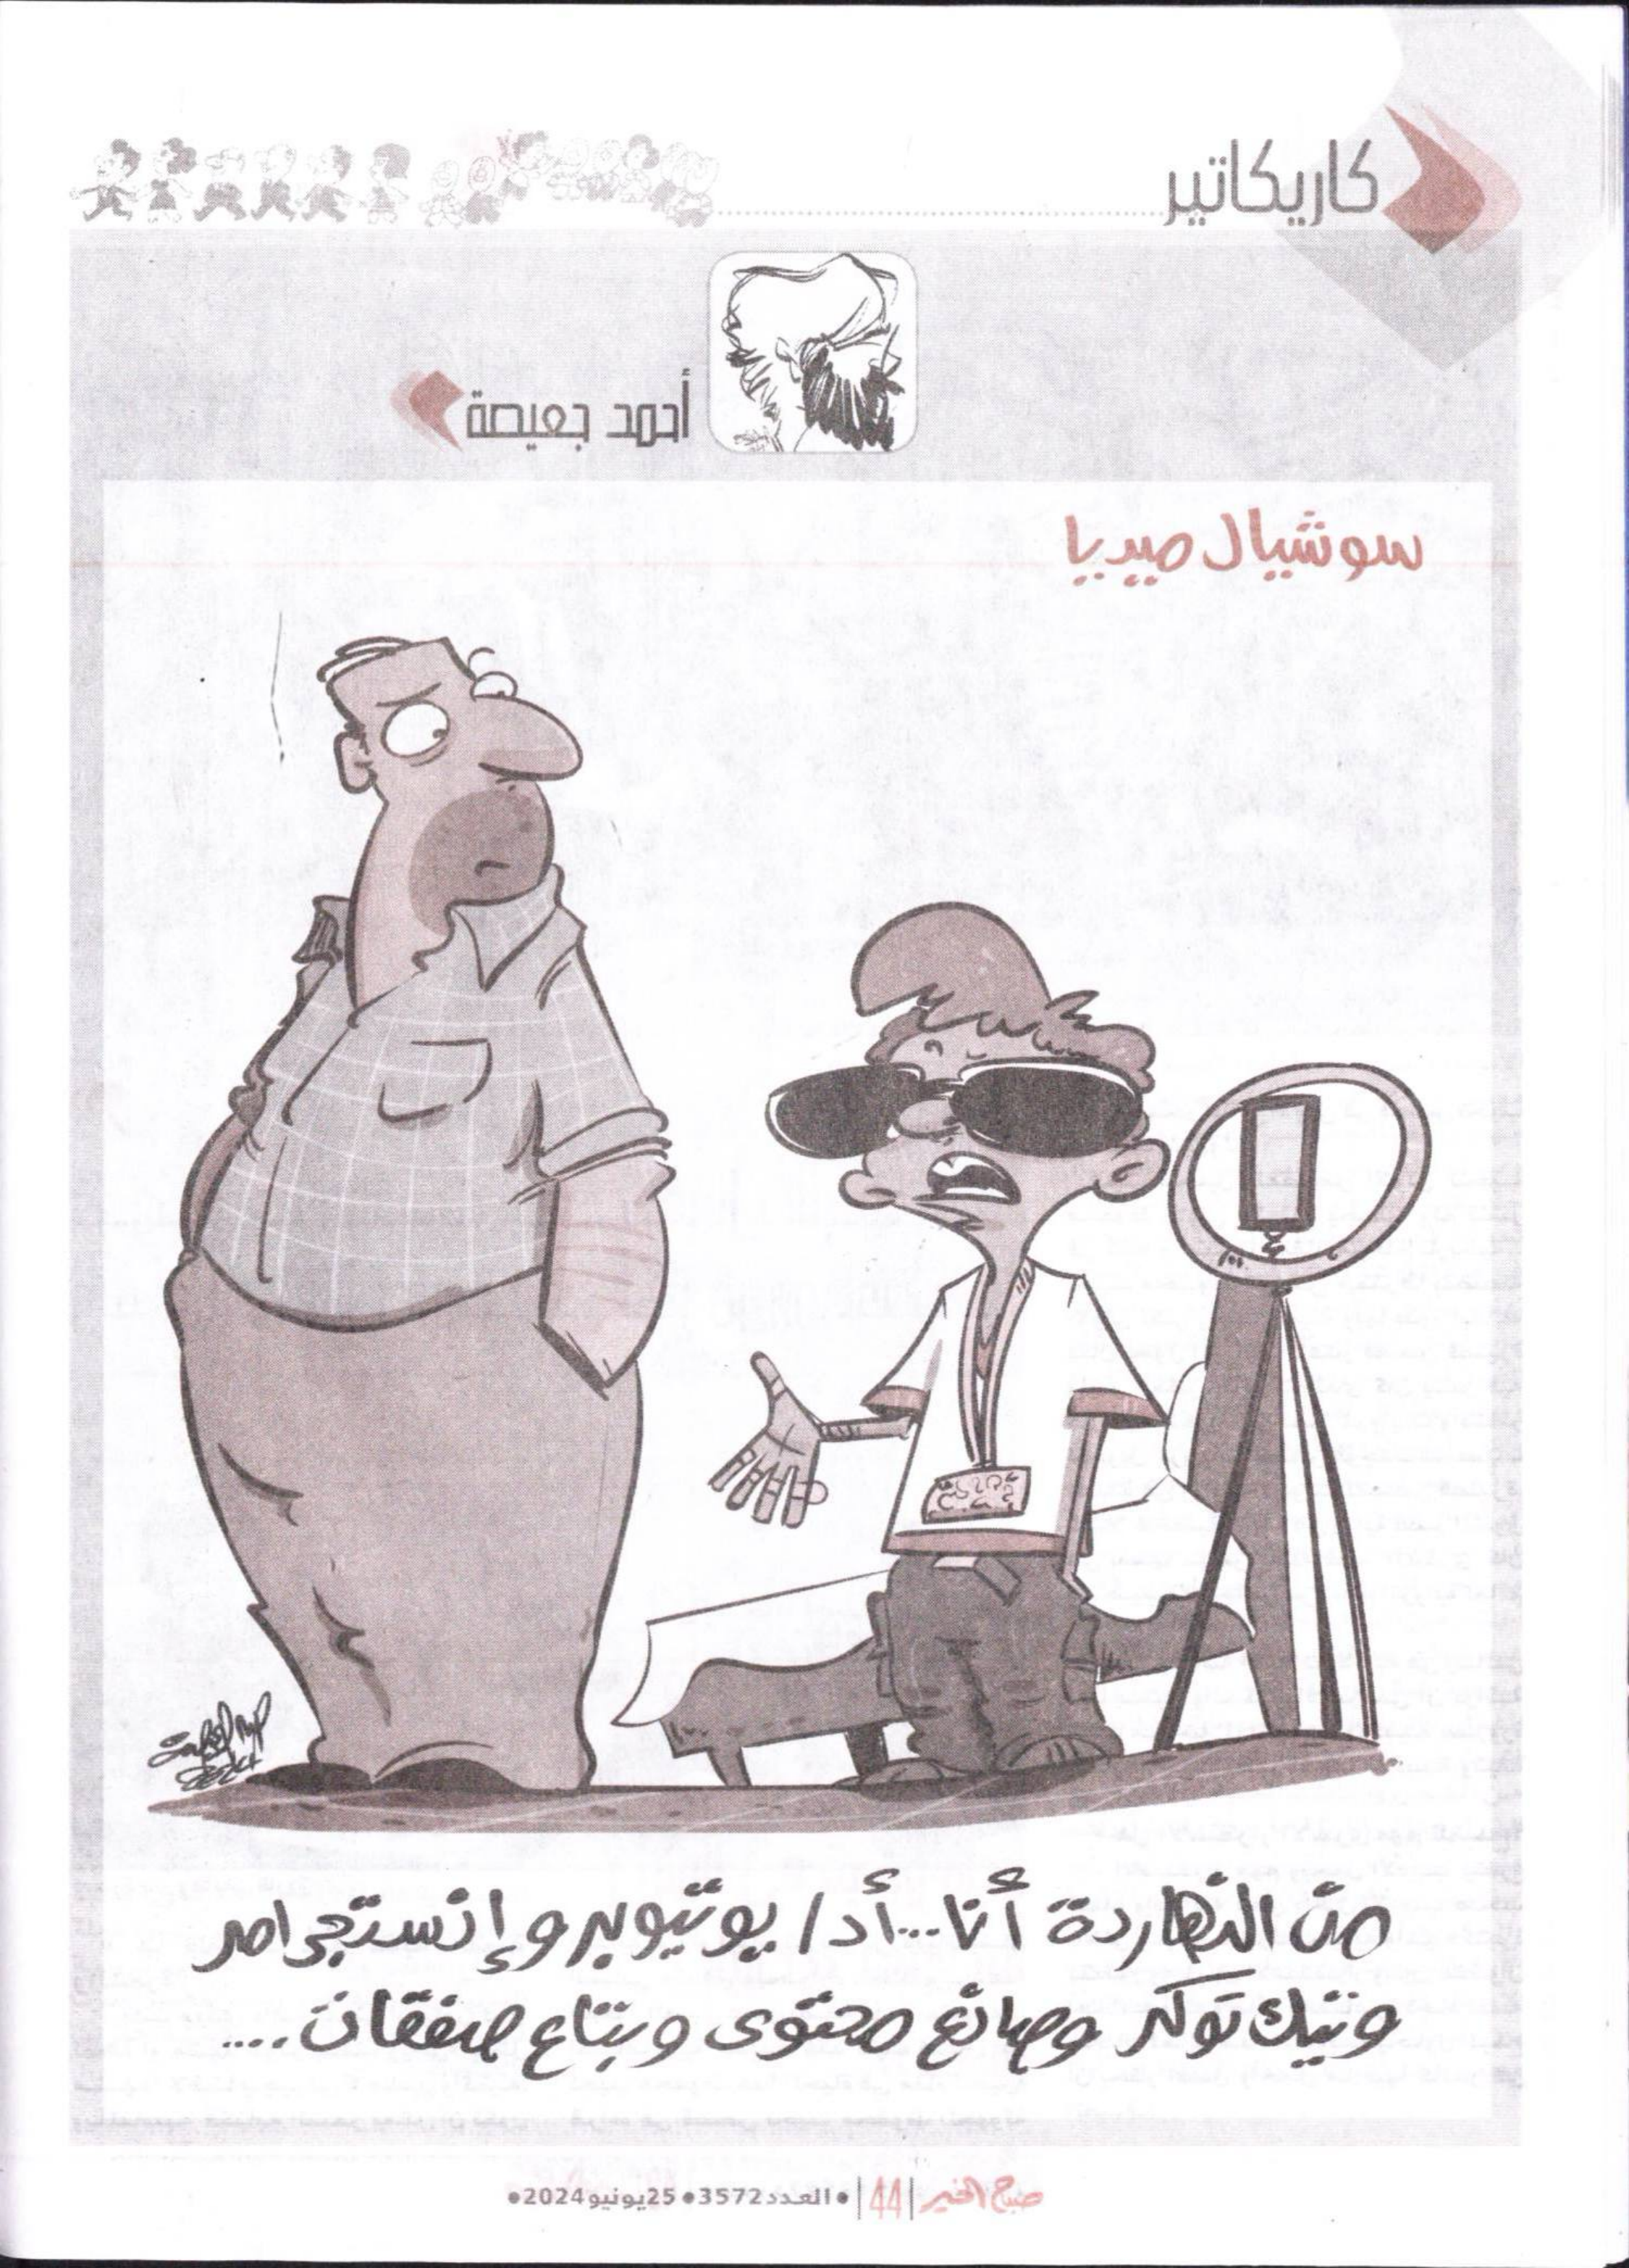 كاريكاتير
أحمد جعيصة
سوشيال ميديا
من النهاردة أنا...أدا يوتيوبر وإنستجرامر
وتيك توكر وصانع محتوى وبتاع صفقات....
صباح الخير |44| • العدد3572• 25يونيو2024•